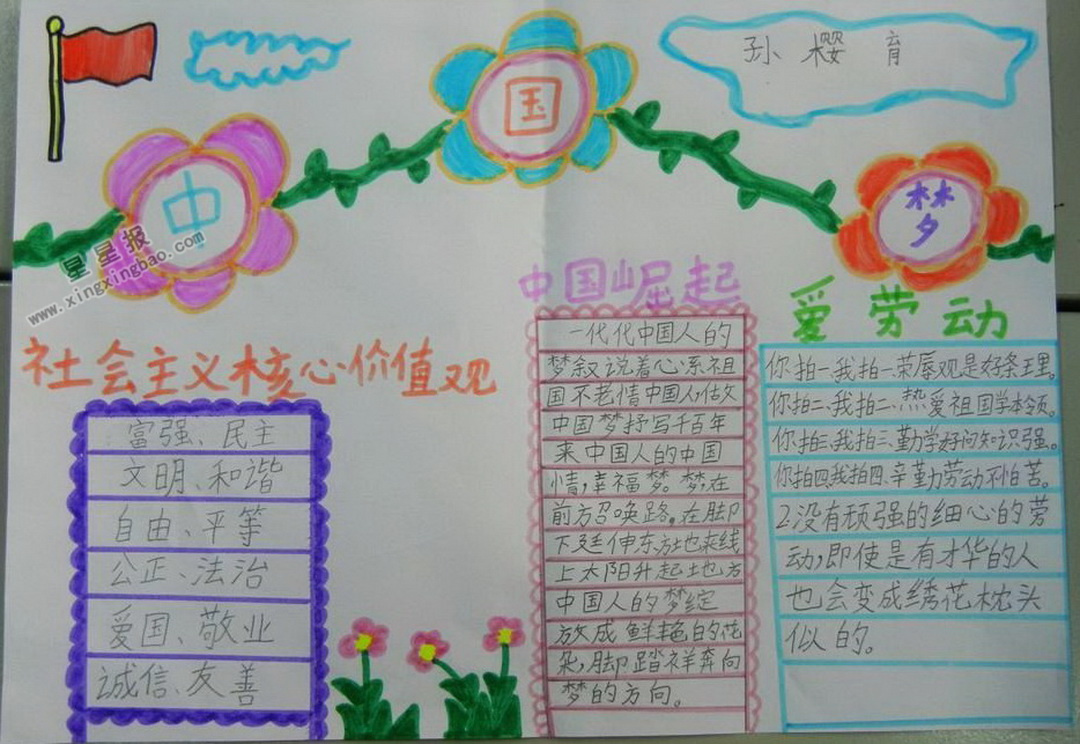 孙樱育
中 国 梦
星星报
www.xingxingbao.com
社会主义核心价值观
富强、民主
文明、和谐
自由、平等
公正、法治
爱国、敬业
诚信、友善
中国崛起
一代代中国人的
梦叙说着心系祖
国不老情中国人,估文
中国梦抒写千百年
来中国人的中国
情,幸福梦。梦,在
前方召唤路。在脚
下延伸东方地来线
上太阳升起土也方
中国人的梦绽
放成鲜艳的花
朵,脚踏祥奔向
梦的方向。
爱劳动
你拍一、我拍一荣辱观是好条王里。
你拍二、我拍二、热爱祖国学本领。
你拍三、我拍三、勤学好问知识强。
你拍四我拍四、辛勤劳动不怕苦。
2没有顽强的细心的劳
动,即使是有才华的人
也会变成绣花枕头
似的。